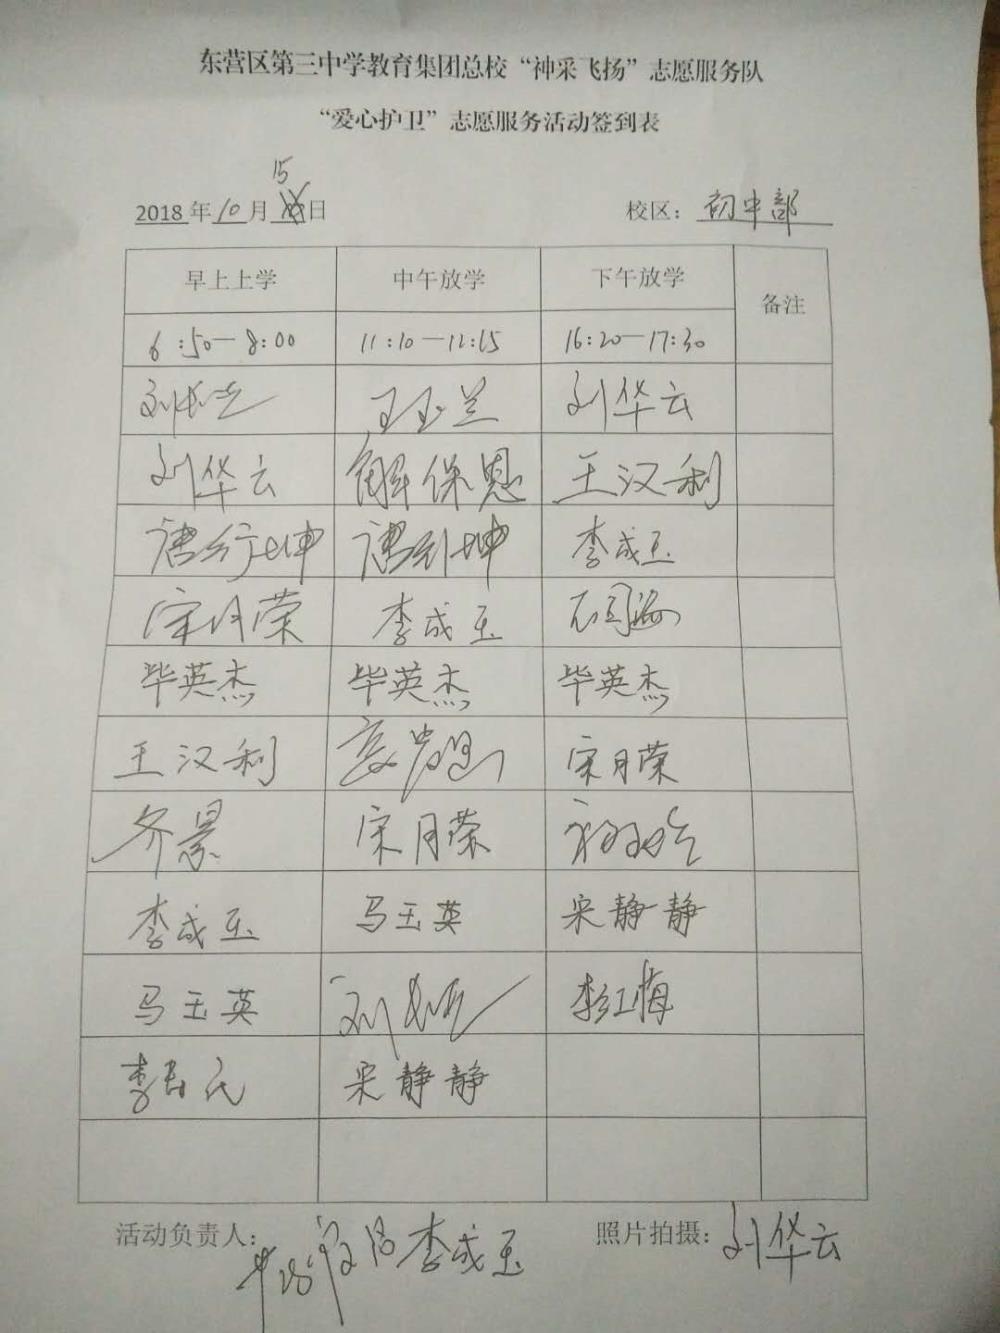 东营区第三中学教育集团总校“神采飞扬”志愿服务队
“爱心护卫”志愿服务活动签到表
15
2018年10月 日 校区：初中部
早上上学 中午放学 下午放学 备注
6:50—8:00 11:10—12:15 16:20—17:30
王玉兰 刘华云
刘华云 解保恩 王汉利
李成玉
宋月荣 李成玉
毕英杰 毕英杰 毕英杰
王汉利 宋月荣
齐景 宋月荣
李成玉 马玉英 宋静静
马玉英 李红梅
宋静静
活动负责人： 李成玉 照片拍摄：刘华云